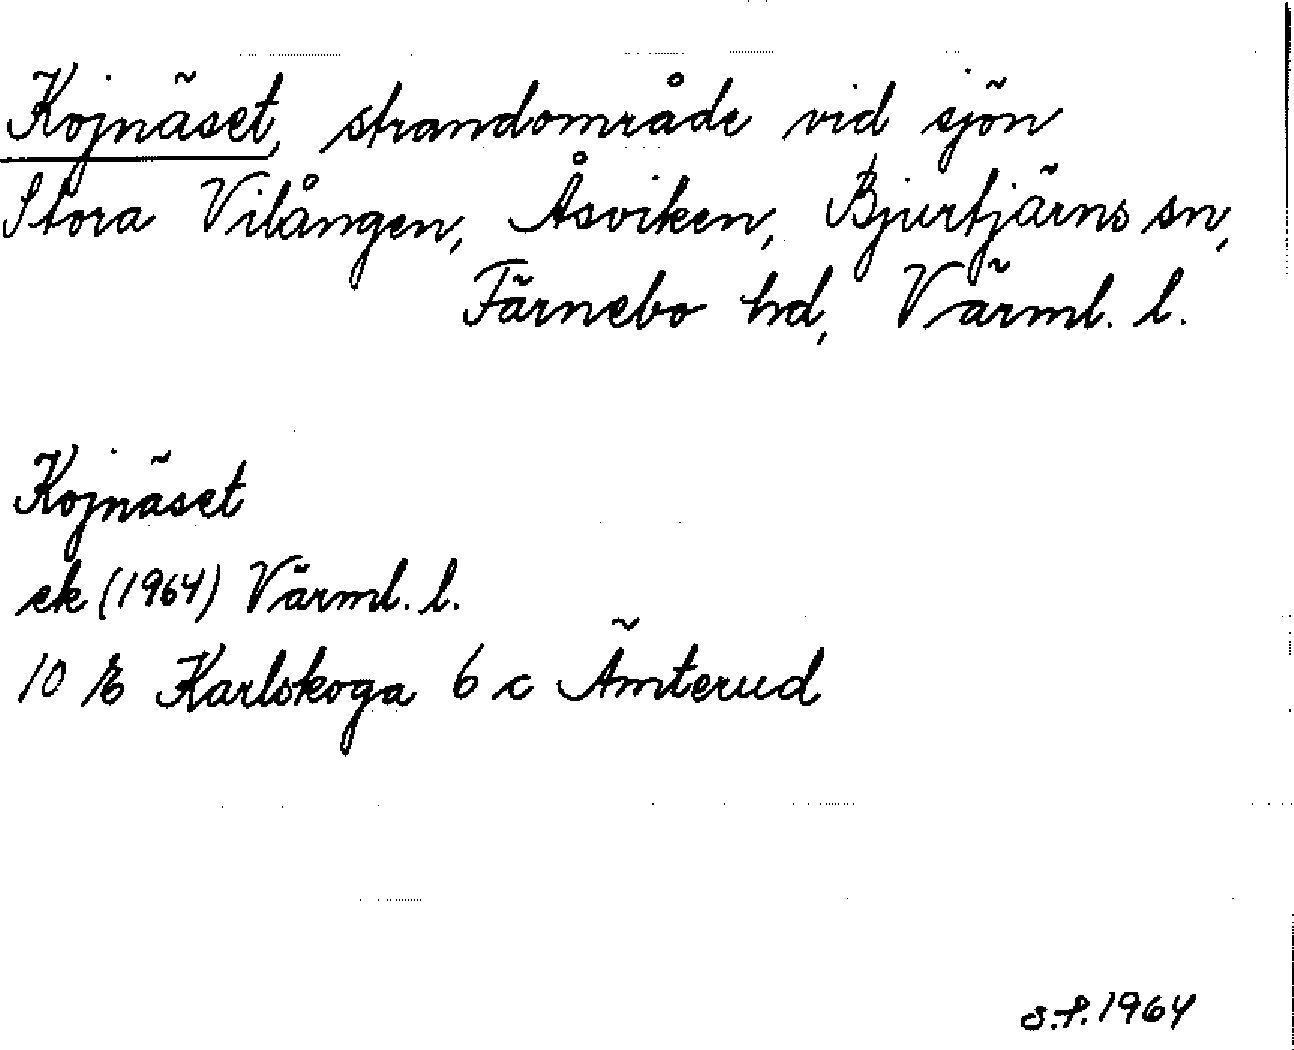 Kojnäset, strandområde vid sjön
Stora Vilången, Åsviken, Bjurtjärns sn,
Färnebo hd, Värml. l.
Kojnäset
ek (1964) Värml. l.
10 E Karlskoga 6 c Ämterud
1964